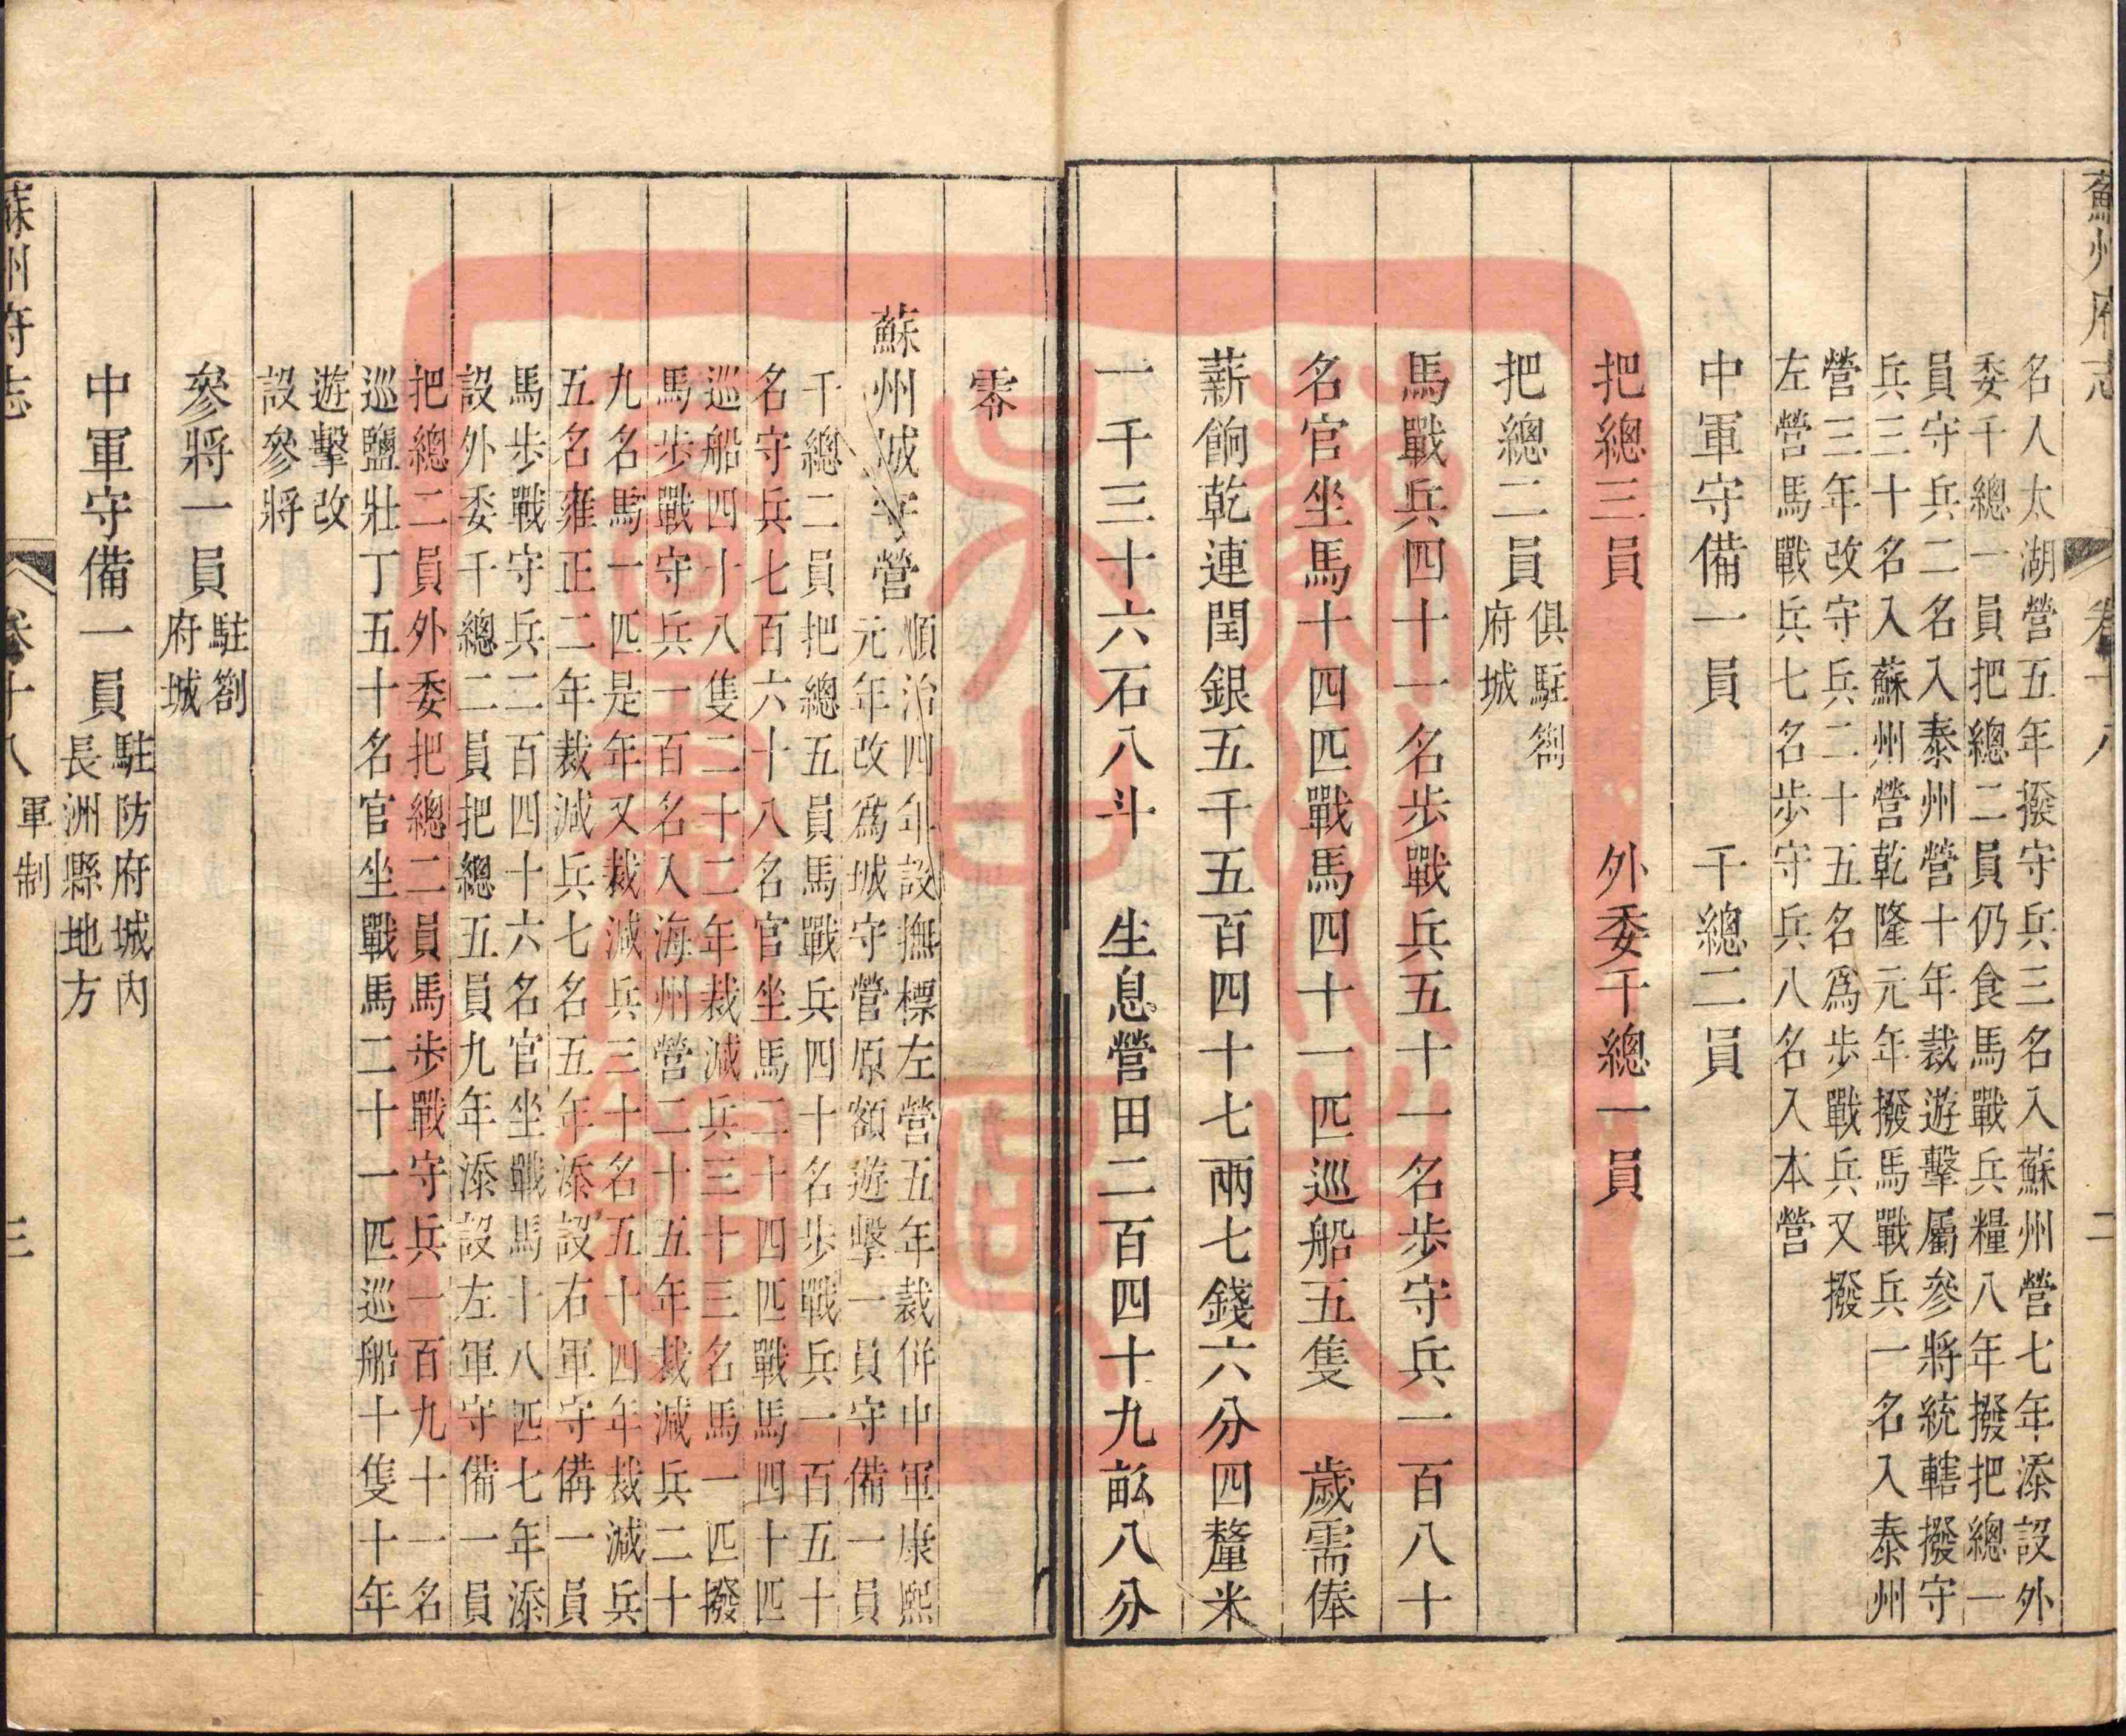 蘇州府志
卷十八
二
名人太湖營五年撥守兵三名入蘇州營七年添設外
委千總一員把總二員仍食馬戰兵糧八年撥把總一
員守兵二名入泰州營十年裁遊擊屬參將統轄撥守
兵三十名入蘇州營乾隆元年撥馬戰兵一名入泰州
營三年改守兵二十五名爲步戰兵又撥
左營馬戰兵七名步守兵八名入本營
中軍守備一員　千總二員
把總三員　外委千總一員
把總二員
俱駐劄
府城
馬戰兵四十一名步戰兵五十一名步守兵一百八十
名官坐馬十四匹戰馬四十一匹巡船五隻　歲需俸
薪餉乾連閏銀五千五百四十七兩七錢六分四釐米
一千三十六石八斗　生息營田二百四十九畝八分
零
蘇州城守營
順治四年設撫標左營五年裁併中軍康熙
元年改爲城守營原額遊擊一員守備一員
千總二員把總五員馬戰兵四十名步戰兵一百五十
名守兵七百六十八名官坐馬二十四匹戰馬四十匹
巡船四十八隻二十二年裁減兵三十三名馬一匹撥
馬步戰守兵一百名入海州營二十五年裁減兵二十
九名馬一匹是年又裁減兵三十名五十四年裁減兵
五名雍正二年裁減兵七名五年添設右軍守備一員
馬步戰守兵二百四十六名官坐戰馬十八匹七年添
設外委千總二員把總五員九年添設左軍守備一員
把總二員外委把總二員馬步戰守兵一百九十一名
巡鹽壯丁五十名官坐戰馬二十一匹巡船十隻十年
遊擊改
設參將
參將一員
駐劄
府城
中軍守備一員
駐防府城內
長洲縣地方
蘇州府志
卷十八
軍制
三